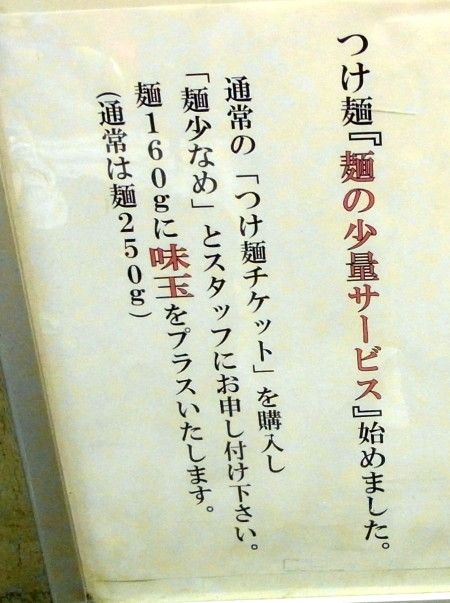 つけ麺『麺の少量サービス』始めました。
通常の「つけ麺チケット」を購入し
「麺少なめ」とスタッフにお申し付け下さい。
麺160gに味玉をプラスいたします。
(通常は麺250g)